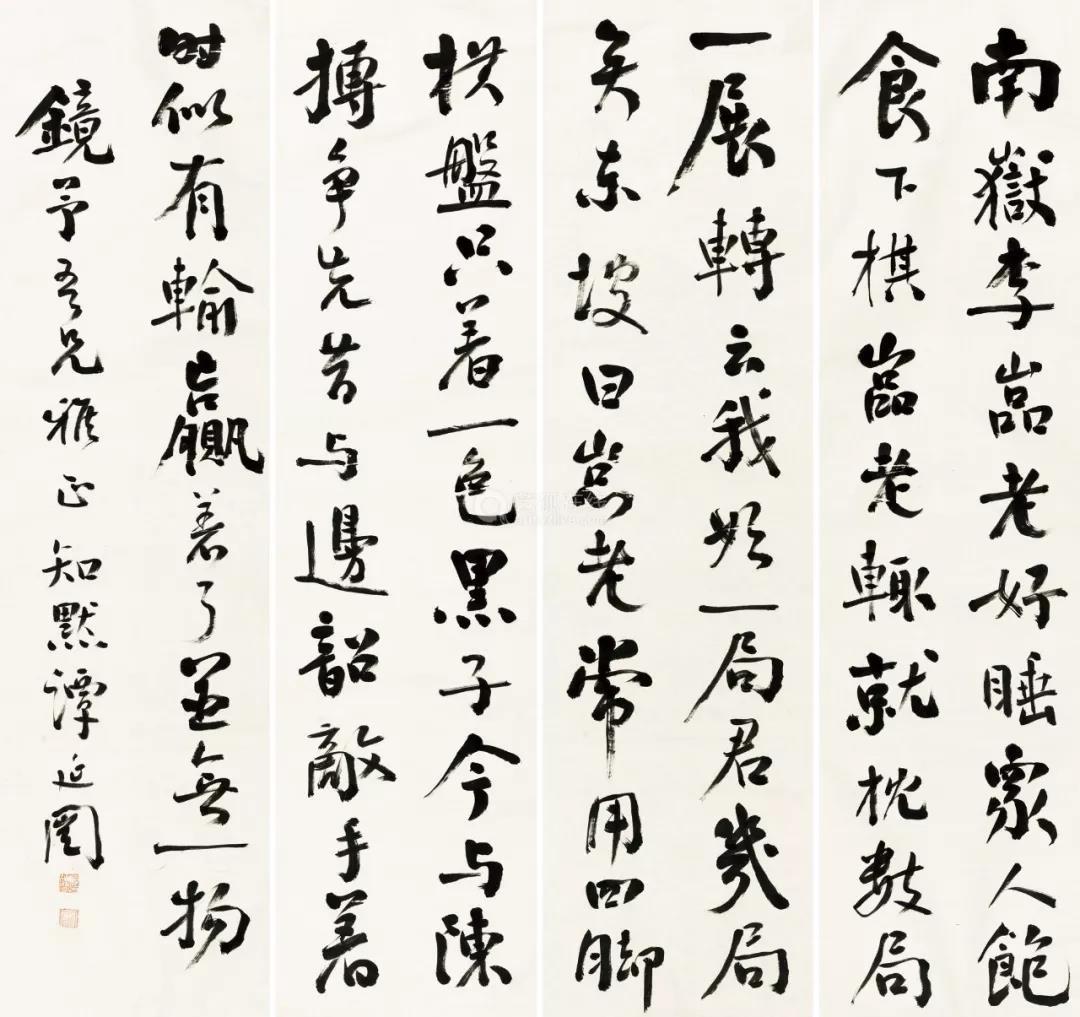 南嶽李嵓老好睡眾人飽
食下棋嵓老輒就枕數局
一展轉云我始一局君幾局
矣東坡曰嵓老常用四脚
棋盤只着一色黑子今与陳
摶争先昔与邊韶敵手着
時似有輸贏着了並無一物
鏡予吾兄雅正 知默譚延闓